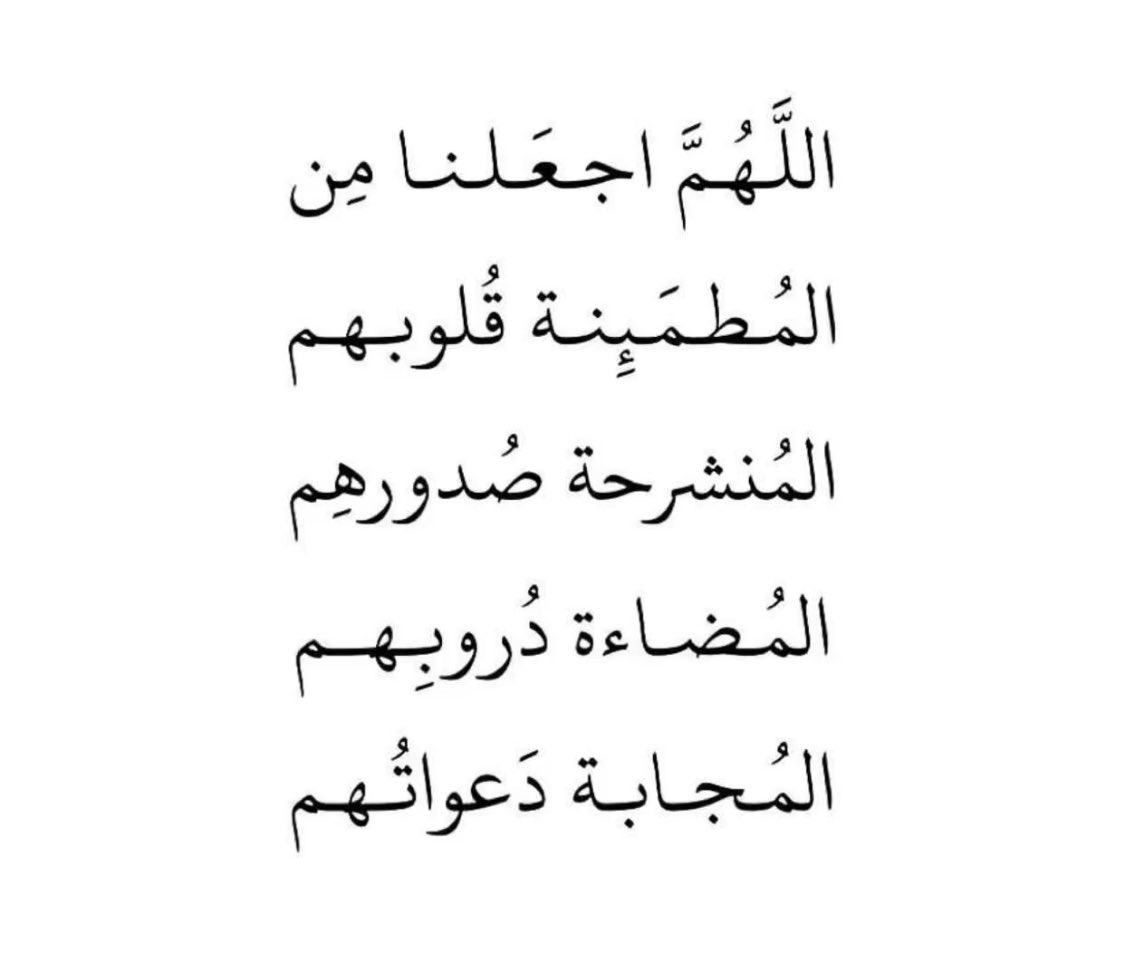 اللَّهُمَّ اجعَلنا مِن
المُطمَئِنة قُلوبهم
المُنشرحة صُدورهِم
المُضاءة دُروبِهم
المُجابة دَعواتُهم